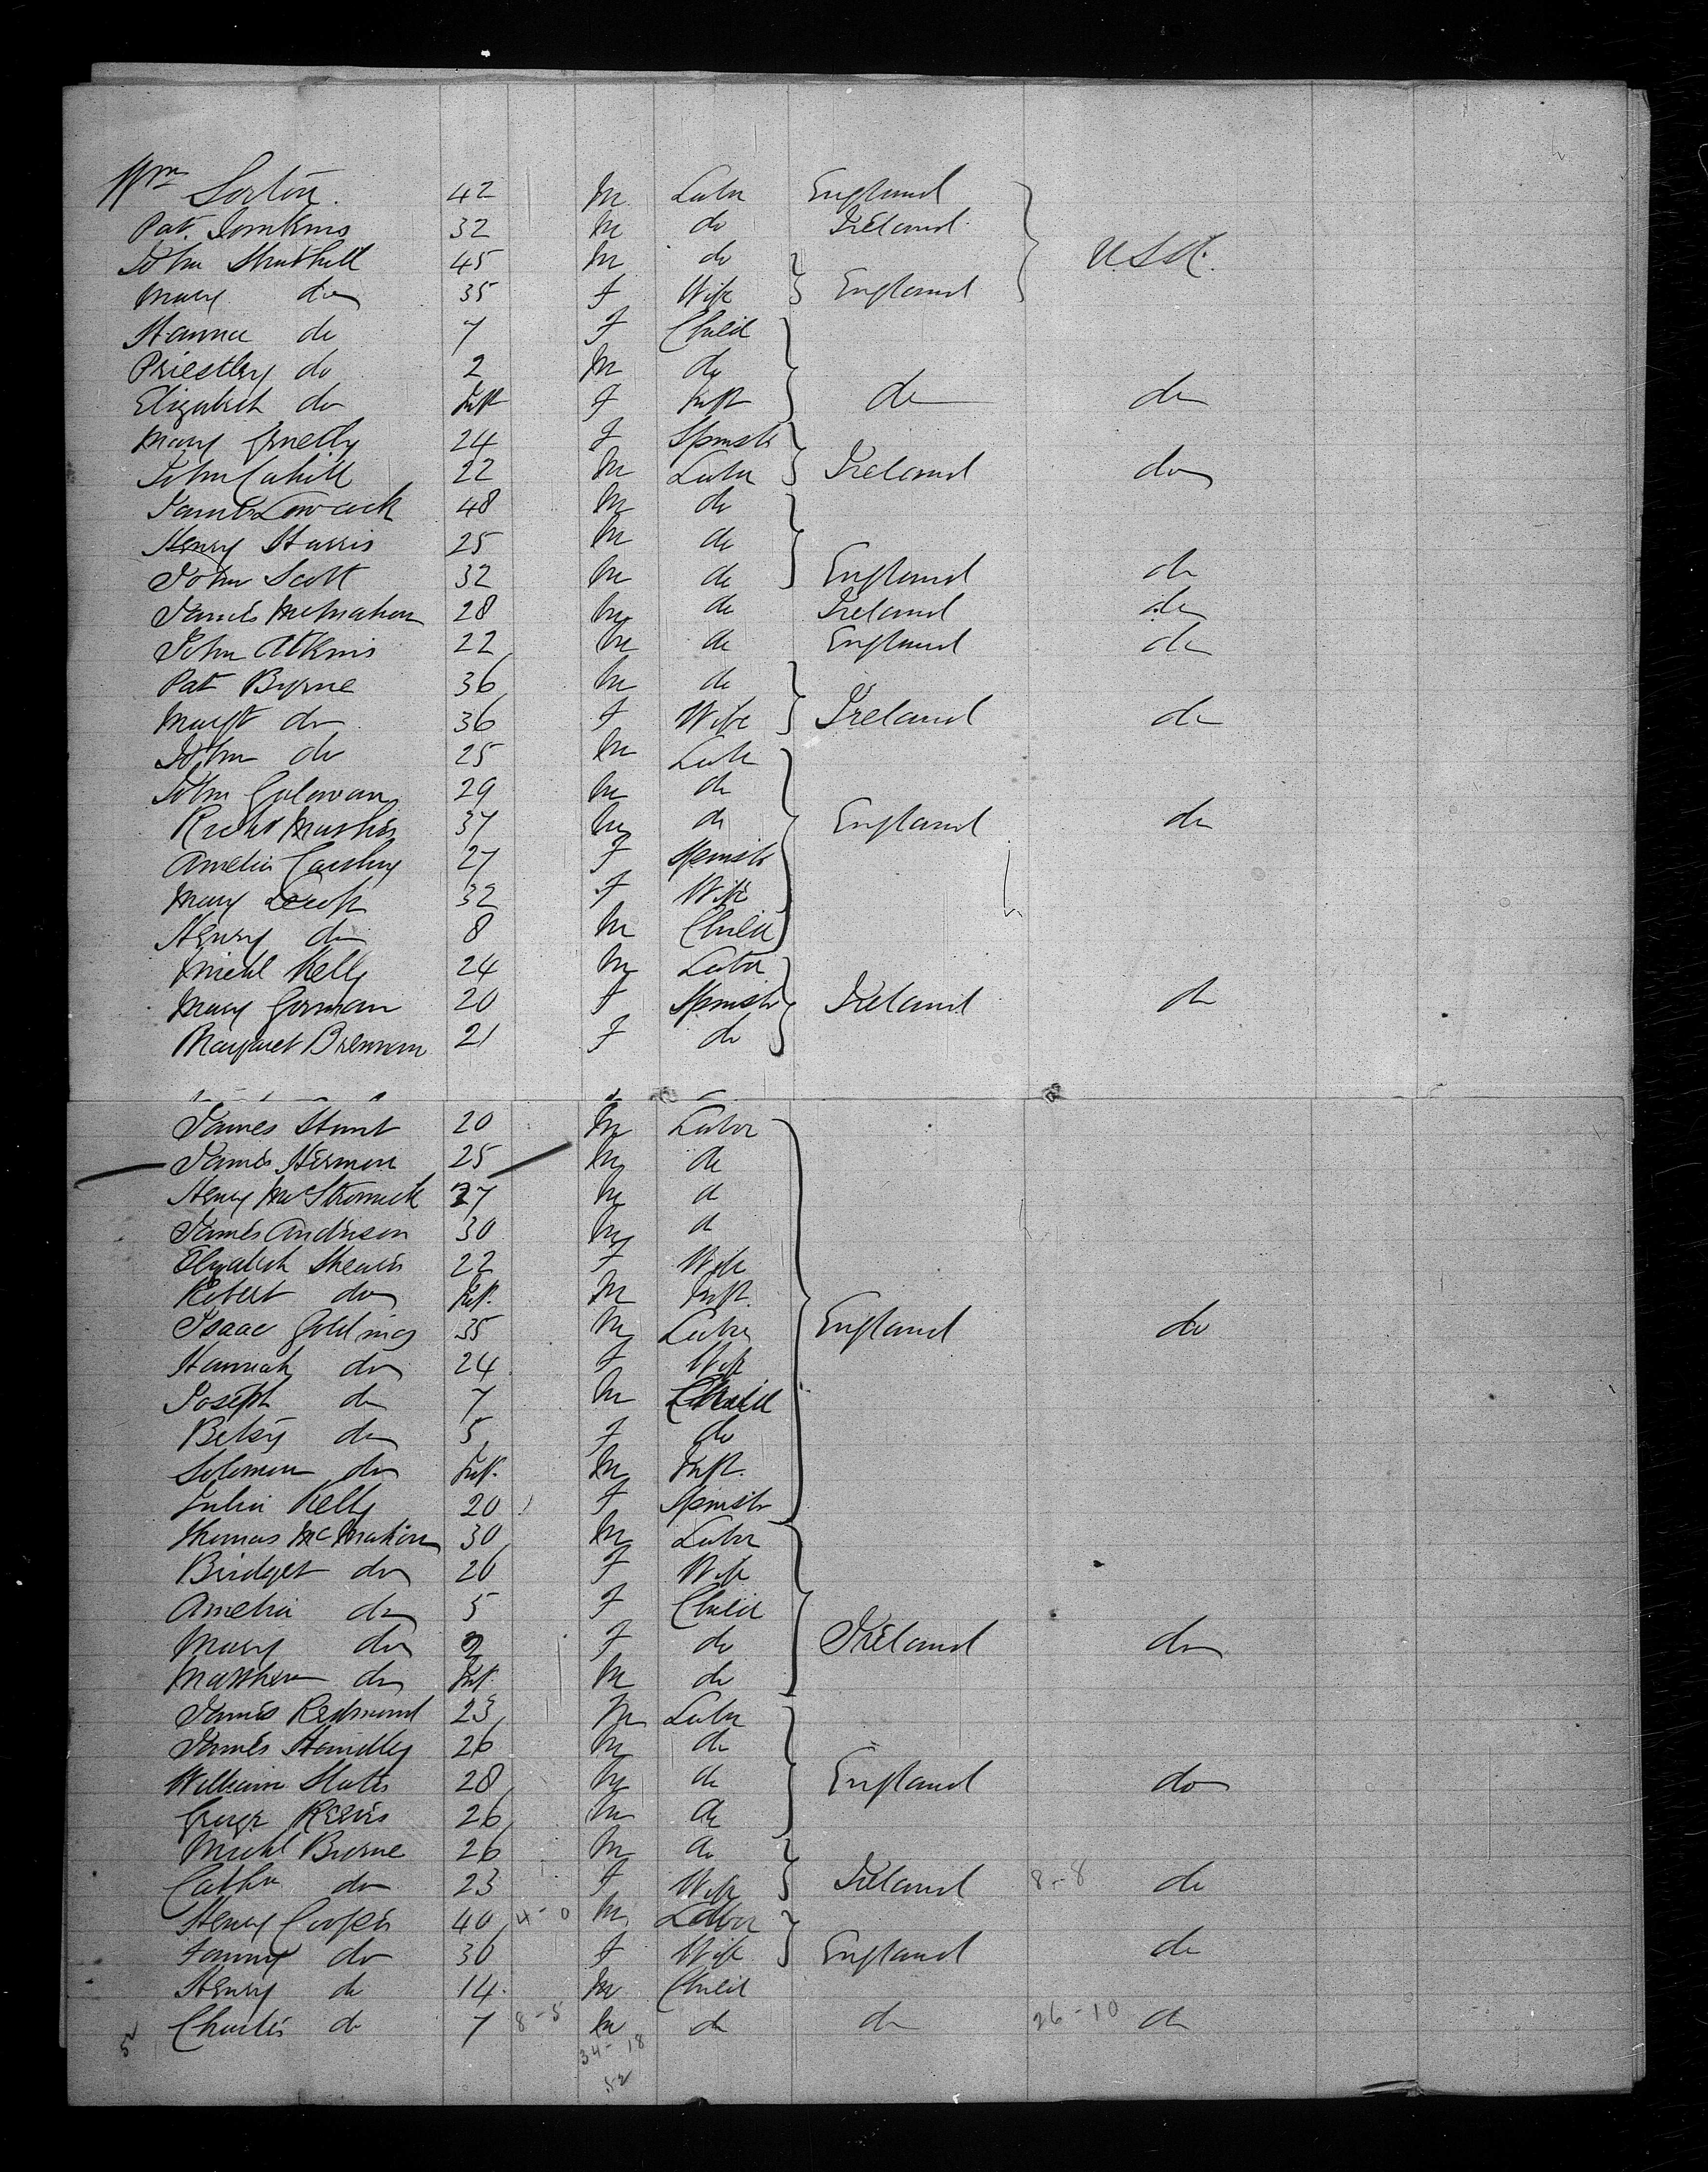 Wm Sorton. 42 M Labr England
Pat. Tomkins 32 M do Ireland
John 45 M do U.S.A.
Mary do 35 F Wife England
Hanna do 7 F Child
Priestley do 2 M do
Elizabeth do Inft F Inft do do
Mary 24 F Spinstr
John Cahill 22 M Labr Ireland do
James Lowcock 48 M do
Henry Harris 25 M do
John Scott 32 M do England do
James McMahon 28 M do Ireland do
John Atkins 22 M do England do
Pat Byrne 36 M do
Margt do 36 F Wife Ireland do
John do 25 M Labr
John 29 M do
Richd 37 M do England do
Amelia 27 F Spinstr
Mary 32 F Wife
Henry do 8 M Child
Michl Kelly 24 M Labr
Mary Gorman 20 F Spinstr Ireland do
Margaret Brennan 21 F do
James Hunt 20 M Labor
James Hermon 25 M do
Henry 27 M do
James Anderson 30 M do
Elizabeth 22 F Wife
Robert do Inft. M Inft.
Isaac Golding 35 M Labr England do
Hannah do 24 F Wife
Joseph do 7 M Child
Betsy do 5 F do
Solomon do Inft. M Inft.
Julia Kelly 20 F Spinstr
Thomas McMahon 30 M Labr
Bridget do 26 F Wife
Amelia do 5 F Child
Mary do F do Ireland do
Matthew do Inft. M do
James Redmond 23 M Labr
James Handley 26 M do
William Slater 28 M do England do
George 26 M do
Michl Byrne 26 M do
Cathn do 23 F Wife Ireland 8-8 do
Henry Cooper 40 4-0 M Labor
Fanny do 36 F Wife England do
Henry do 14 M Child
Charles do 7 8-5 M do do 26-10 do
34-18
52